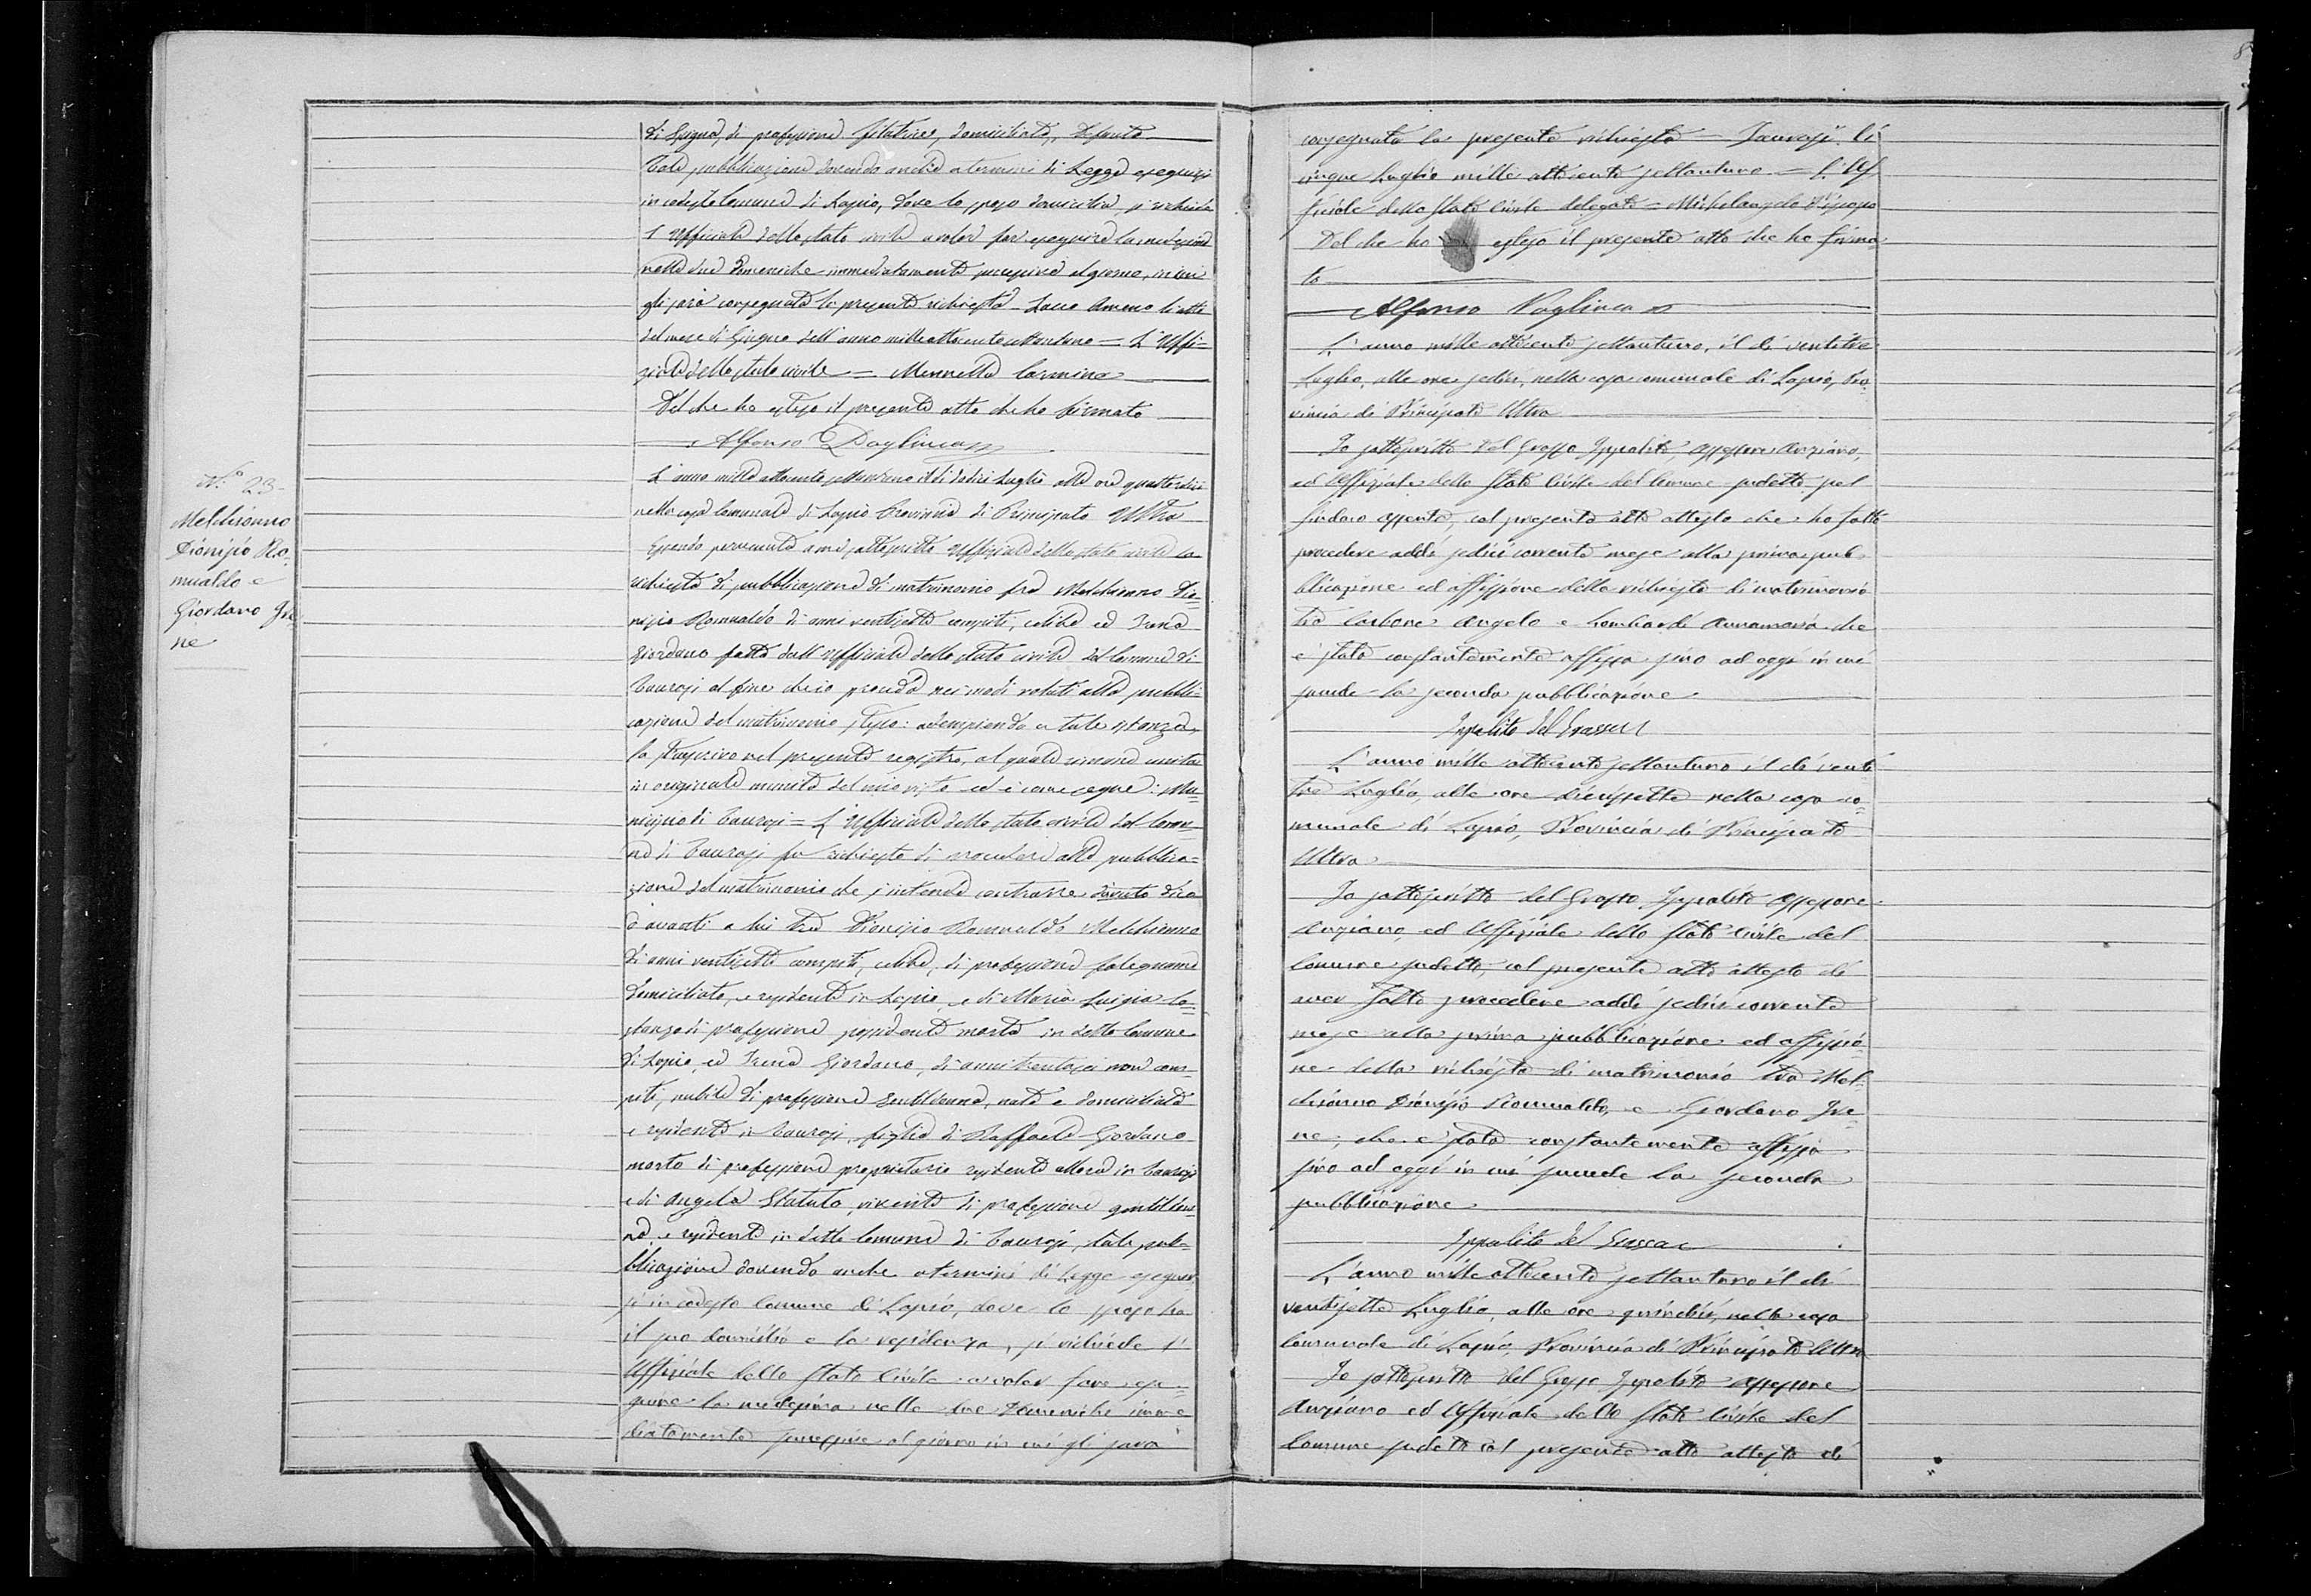 di Spigno, di professione filatrice, domiciliata, defunta
Tale pubblicazione dovendo anche a termini di Legge eseguirsi
in codesto Comune di Lapio, dove lo sposo domicilia, si richiede
l'Uffiziale dello stato civile a voler far eseguire la medesima
nelle due Domeniche immediatamente successive al giorno, in cui
gli sarà consegnata la presente richiesta - Lacco Ameno li otto
del mese di Giugno dell'anno mille ottocento settantuno = L'Uffi=
ziale dello stato civile = Mennella Carmine
Del che ho esteso il presente atto che ho firmato
Alfonso
N.° 23
Melchionno
Dionisio Ro-
mualdo e
Giordano Ire-
ne
L'anno mille ottocento settantuno il dì dodici Luglio alle ore quattordici
nella casa Comunale di Lapio Provincia di Principato Ultra
Essendo pervenuta a me sottoscritto Uffiziale dello stato civile la
richiesta di pubblicazione di matrimonio fra Melchionno Dio=
nisio Romualdo di anni ventisette compiti, celibe ed Irene
Giordano fatta dall'Uffiziale dello stato civile del Comune di
Taurasi al fine che io proceda nei modi voluti alla pubbli-
cazione del matrimonio stesso: adempiendo a tale istanza,
la trascrivo nel presente registro, al quale rimane unita
in originale munita del mio visto ed è come segue: Mu=
nicipio di Taurasi = L'Uffiziale dello stato civile del Comu=
ne di Taurasi fu richiesto di procedere alla pubblica=
zione del matrimonio che s'intende contrarre
d'avanti a lui tra Dionisio Romualdo Melchionno
di anni ventisette compiti, celibe, di professione falegname
domiciliato, e residente in Lapio, e di Maria Luigia Co=
stanza di professione possidente morta in detto Comune
di Lapio, ed Irene Giordano, di anni trentasei non com=
piti, nubile di professione gentildonna, nata e domiciliata
e residente in Taurasi, figlia di Raffaele Giordano
morto di professione proprietario residente allora in Taurasi
e di Angela Statuto, vivente di professione gentildon=
na, e residente in detto Comune di Taurasi, tale pub=
blicazione dovendo anche a termini di Legge eseguir-
si in codesto Comune di Lapio, dove lo sposo ha
il suo domicilio e la residenza, si richiede l'
Uffiziale dello Stato Civile a voler fare ese=
guire la medesima nelle due Domeniche imme=
diatamente successive al giorno in cui gli sarà
consegnata la presente richiesta = Taurasi li
cinque Luglio mille ottocento settantuno = L'Uf
fiziale dello Stato Civile delegato = Michelangelo
Del che ho esteso il presente atto che ho firma-
to
Alfonso
L'anno mille ottocento settantuno, il dì ventitre
Luglio, alle ore sedici, nella casa comunale di Lapio, Pro-
vincia di Principato Ultra
Io sottoscritto Del Grosso Ippolito, Assessore Anziano,
ed Uffiziale dello Stato Civile del Comune sudetto pel
Sindaco assente, col presente atto attesto che ho fatto
procedere addì sedici corrente mese alla prima pub-
blicazione ed affissione della richiesta di matrimonio
tra Carbone Angelo e Lombardi Annamaria che
è stata costantemente affissa sino ad oggi in cui
succede la seconda pubblicazione
Ippolito del Grosso
L'anno mille ottocento settantuno il dì venti
tre Luglio, alle ore diecissette nella casa co=
munale di Lapio, Provincia di Principato
Ultra
Io sottoscritto del Grosso Ippolito Assessore
Anziano, ed Uffiziale dello Stato Civile del
Comune sudetto, col presente atto attesto di
aver fatto procedere addì sedici corrente
mese alla prima pubblicazione ed affissio=
ne della richiesta di matrimonio tra Mel=
chionno Dionisio Romualdo, e Giordano Ire=
ne, che è stata costantemente affissa
sino ad oggi in cui succede la seconda
pubblicazione
Ippolito del Grosso
L'anno mille ottocento settantuno il dì
ventisette Luglio, alle ore quindici, nella casa
Comunale di Lapio, Provincia di Principato Ultra
Io sottoscritto del Grosso Ippolito Assessore
Anziano ed Uffiziale dello Stato Civile del
Comune sudetto col presente atto attesto di